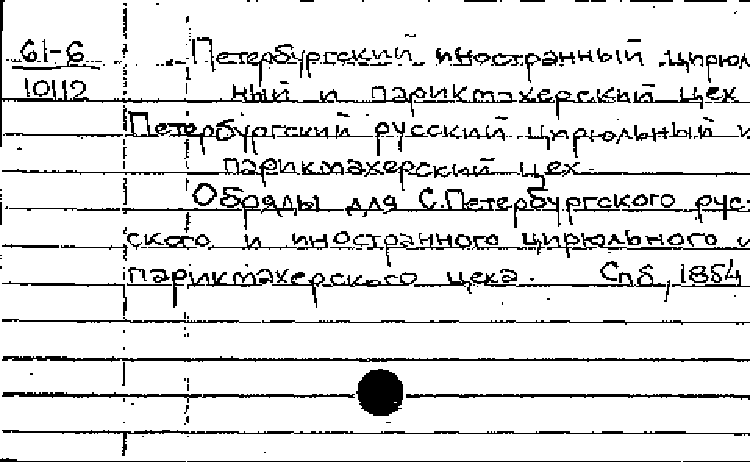 61-6
10112
Петербургский иностранный цирюль
ный и парикмахерский цех
Петербургский русский цирюльный и
парикмахерский цех.
Обряды для С.Петербургского рус-
ского и иностранного цирюльного и
парикмахерского цеха. Спб, 1854